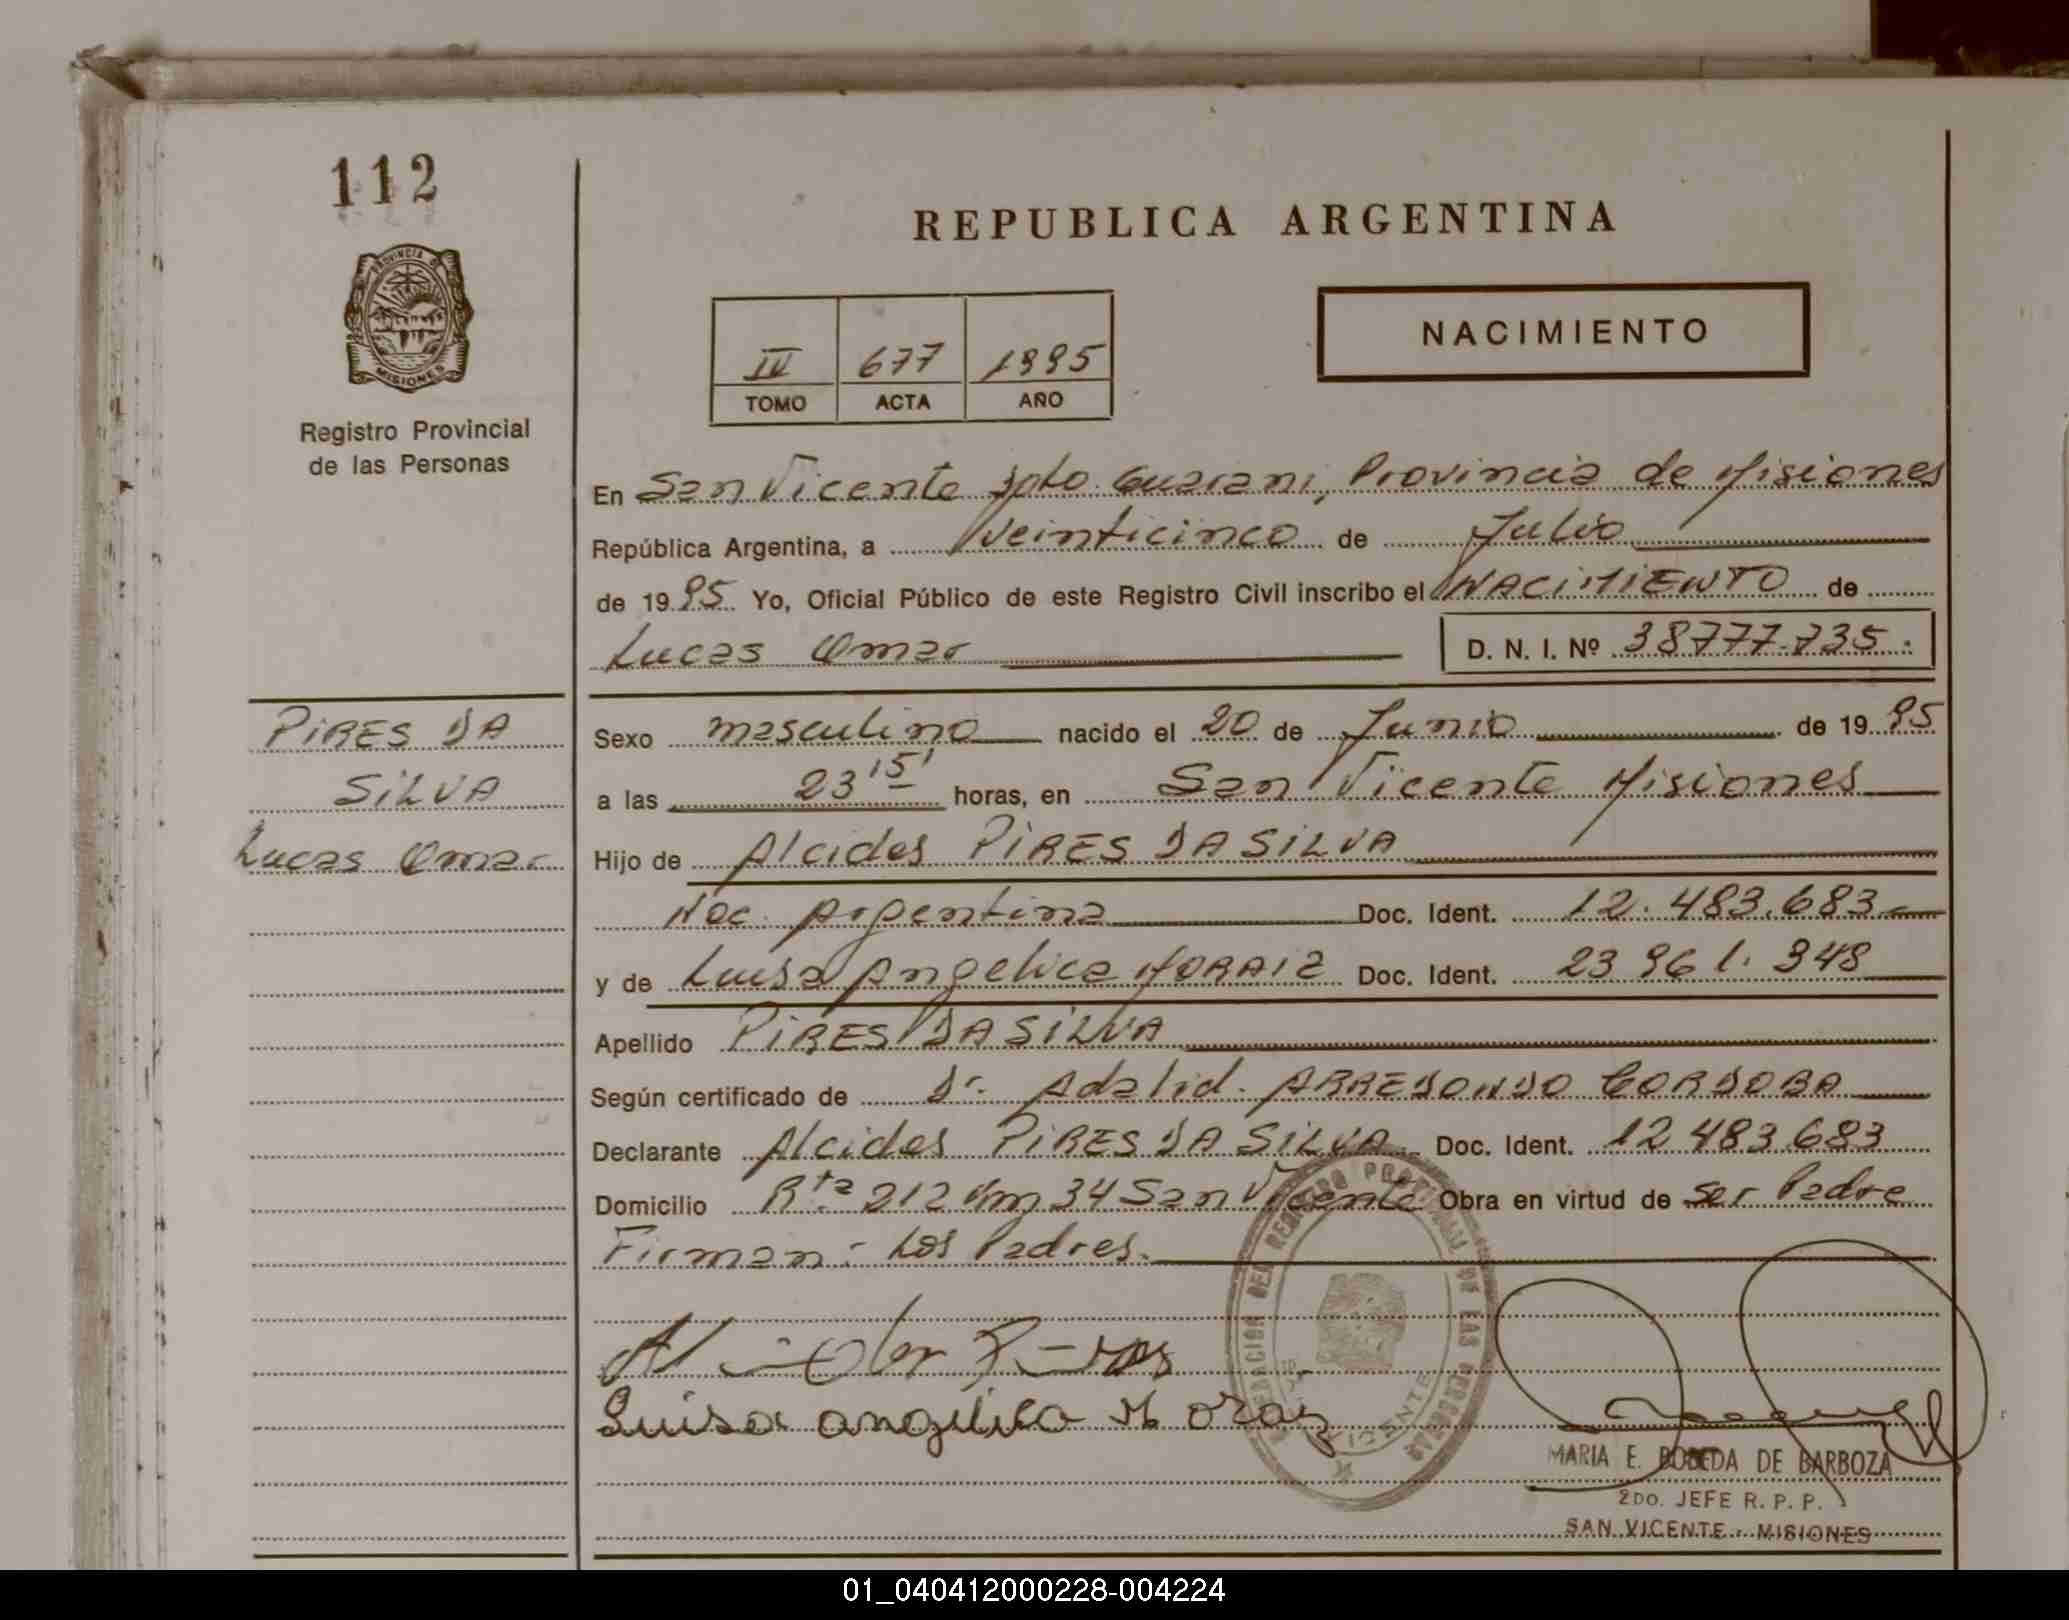 112
REPUBLICA ARGENTINA
PROVINCIA DE
MISIONES
Registro Provincial
de las Personas
IV 677 1995
TOMO ACTA AÑO
NACIMIENTO
En San Vicente Dpto. Guarani, Provincia de Misiones
República Argentina, a veinticinco de Julio
de 1995 Yo, Oficial Público de este Registro Civil inscribo el NACIMIENTO de
Lucas Omar D. N. I. Nº 38777.735.
PIRES DA
SILVA
Lucas Omar
Sexo masculino nacido el 20 de Junio de 1995
a las 23 15' horas, en San Vicente Misiones
Hijo de Alcides PIRES DA SILVA
Nac. Argentina Doc. Ident. 12.483.683
y de Luisa Angelica MORAIZ Doc. Ident. 23 961.348
Apellido PIRES DA SILVA
Según certificado de Dr. Adalid. ARREDONDO CORDOBA
Declarante Alcides PIRES DA SILVA Doc. Ident. 12.483.683
Domicilio Rta 212 Km 34 San Vicente Obra en virtud de ser Padre
Firman: Los Padres.
Luisa angelica Moraiz
DEL REGISTRO PROVINCIAL DE LAS PERSONAS
VICENTE
MARIA E. BOBEDA DE BARBOZA
2DO. JEFE R. P. P.
SAN VICENTE - MISIONES
01_040412000228-004224